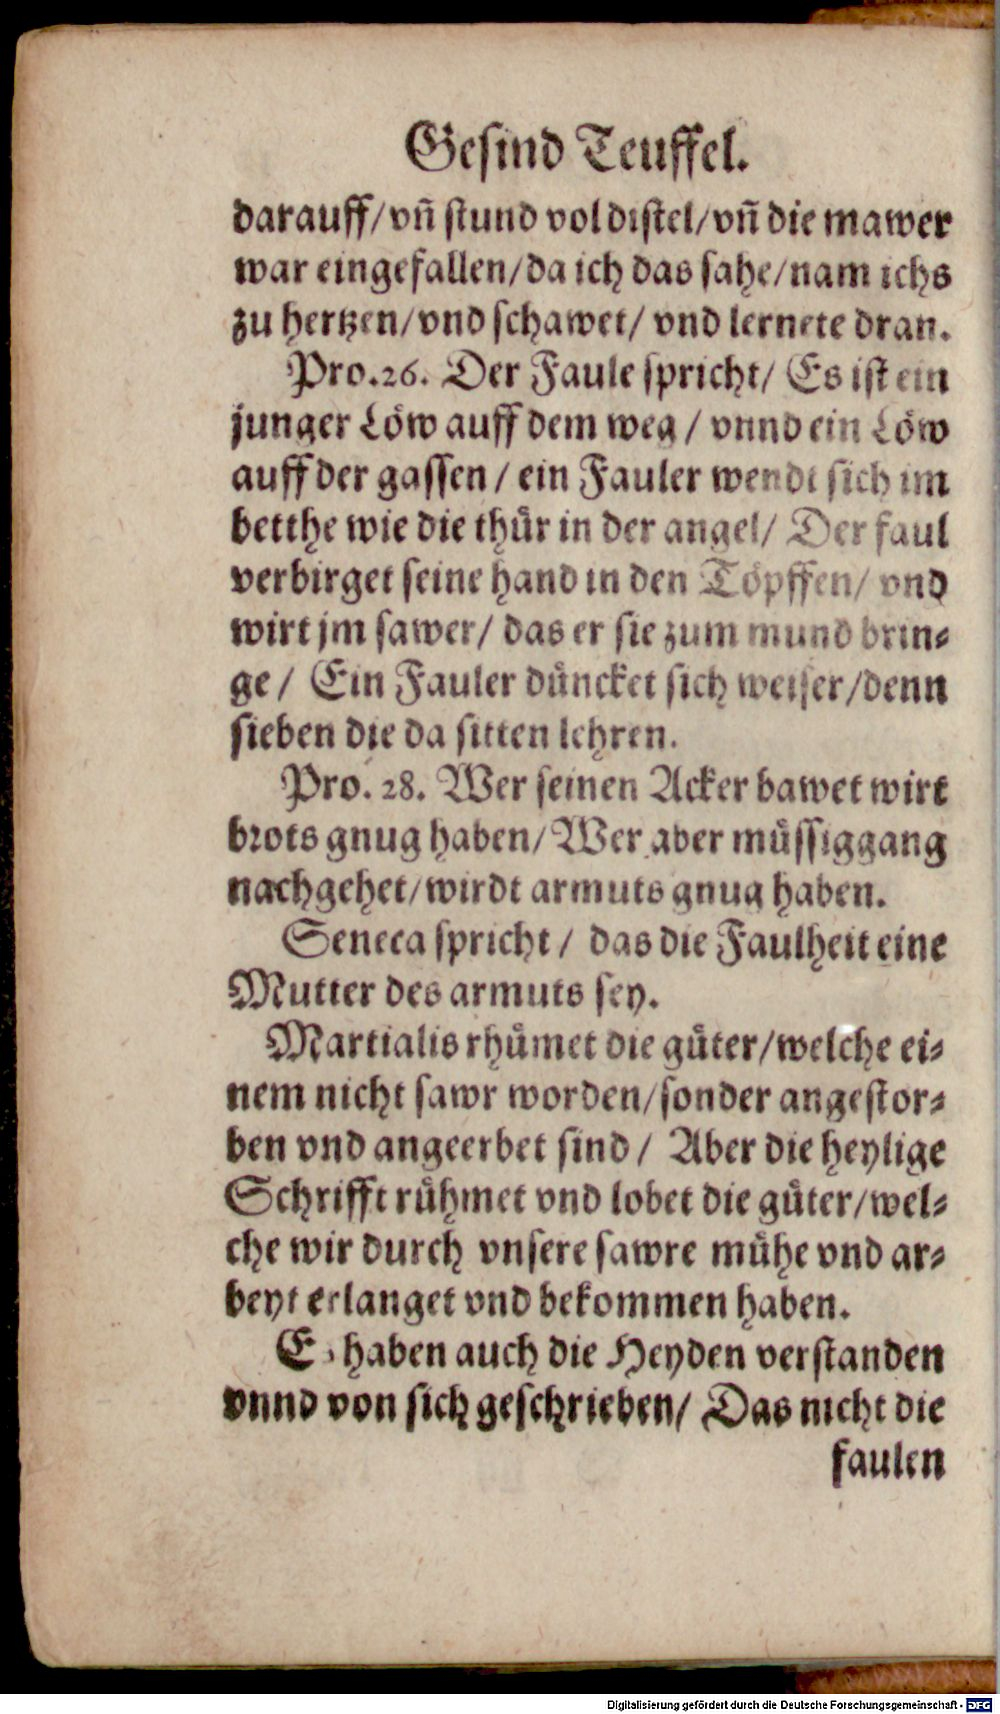 Gesind Teuffel.
darauff/vñ stund vol distel/vñ die mawer
war eingefallen/da ich das sahe/nam ichs
zu hertzen/vnd schawet/ vnd lernete dran.
Pro.26. Der Faule spricht/ Es ist ein
junger Löw auff dem weg / vnnd ein Löw
auff der gassen / ein Fauler wendt sich im
betthe wie die thür in der angel/ Der faul
verbirget seine hand in den Töpffen/ vnd
wirt jm sawer/ das er sie zum mund brin⸗
ge / Ein Fauler düncket sich weiser/denn
sieben die da sitten lehren.
Pro. 28. Wer seinen Acker bawet wirt
brots gnug haben/Wer aber müssiggang
nachgehet/wirdt armuts gnug haben.
Seneca spricht / das die Faulheit eine
Mutter des armuts sey.
Martialis rhümet die güter/welche ei⸗
nem nicht sawr worden/sonder angestor⸗
ben vnd angeerbet sind / Aber die heylige
Schrifft rühmet vnd lobet die güter/wel⸗
che wir durch vnsere sawre mühe vnd ar⸗
beyt erlanget vnd bekommen haben.
Es haben auch die Heyden verstanden
vnnd von sich geschrieben/ Das nicht die
faulen
Digitalisierung gefördert durch die Deutsche Forschungsgemeinschaft - DFG